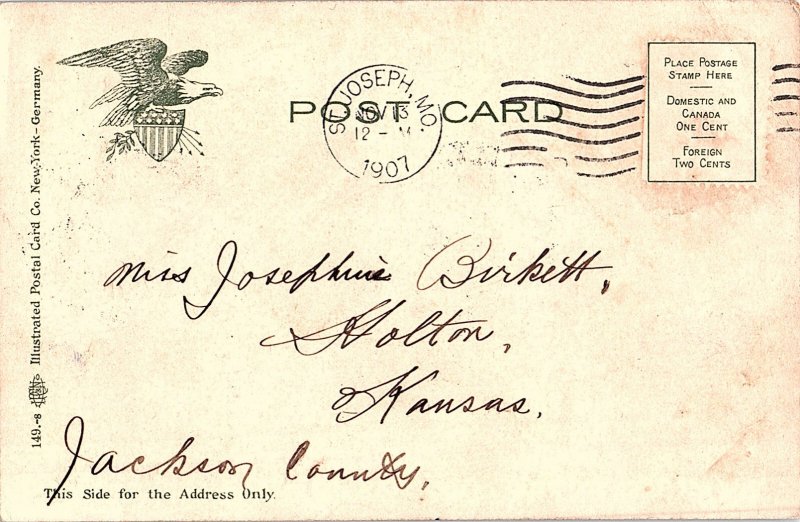 POST CARD
ST. JOSEPH, MO.
NOV 13
12 - M
1907
PLACE POSTAGE
STAMP HERE
DOMESTIC AND
CANADA
ONE CENT
FOREIGN
TWO CENTS
149.-8 Illustrated Postal Card Co. New York-Germany.
Miss Josephine Birkett,
Holton,
Kansas.
Jackson County,
This Side for the Address Only.